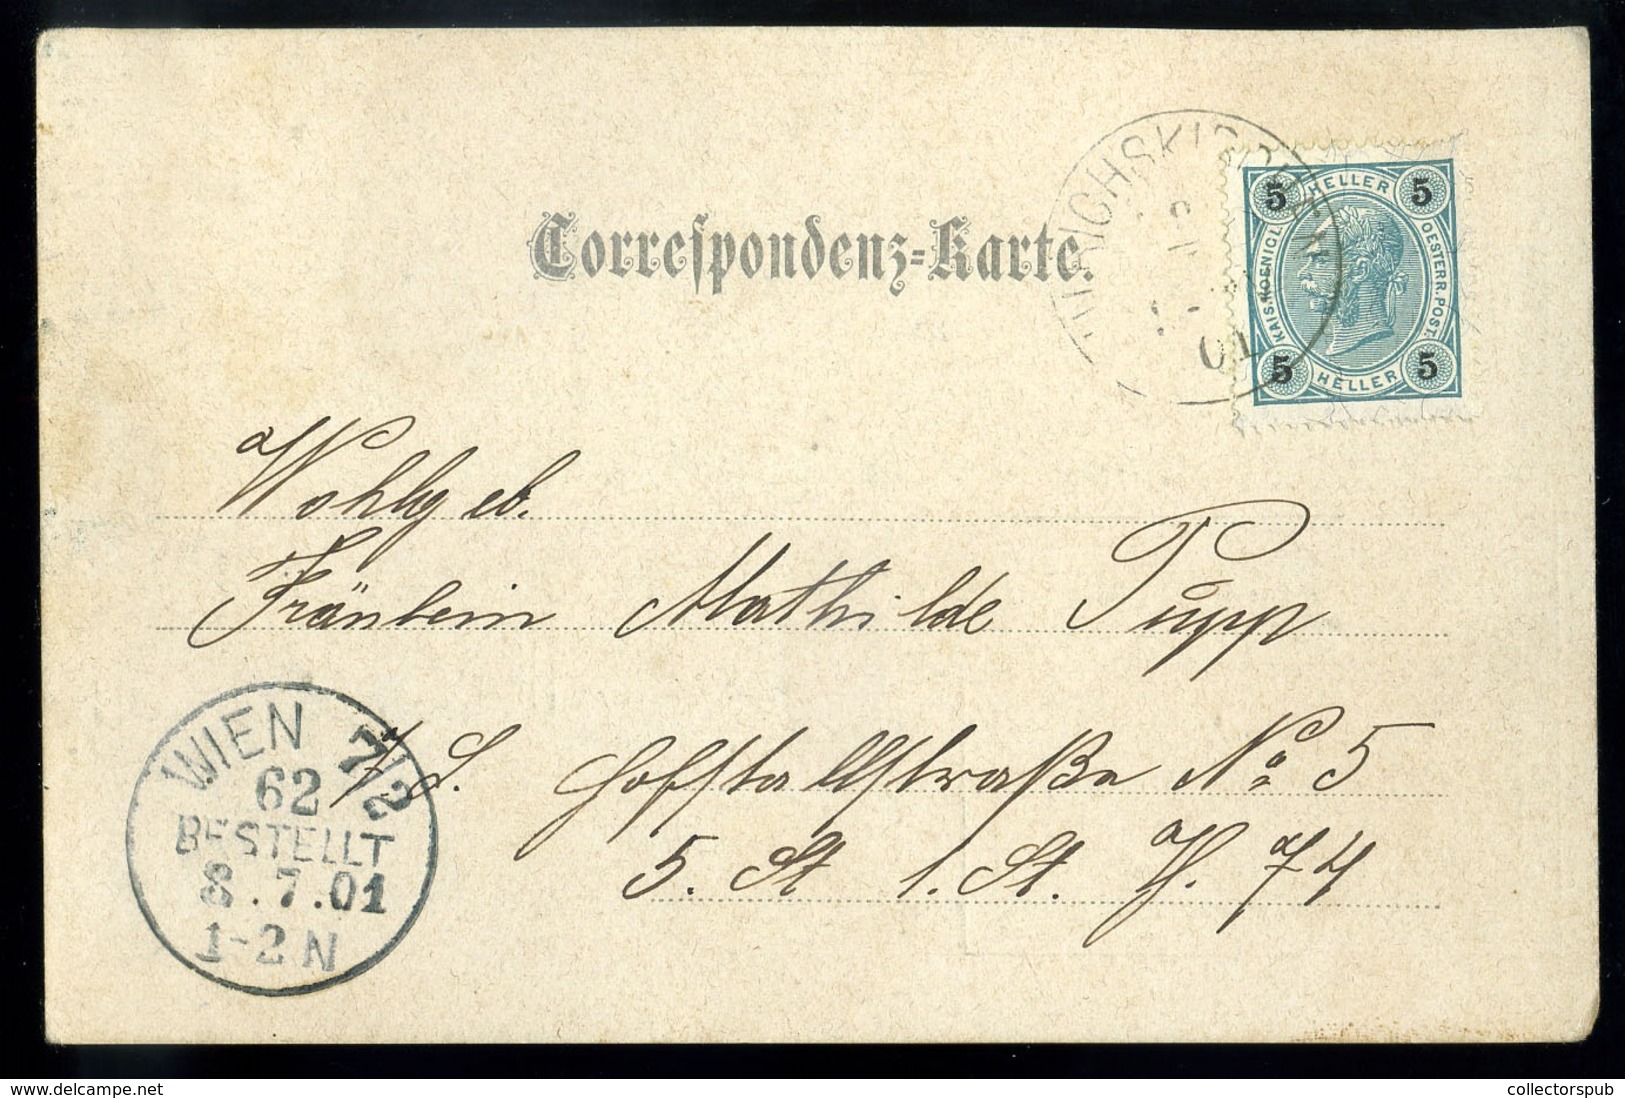 Correspondenz-Karte.
5 HELLER 5
KAIS. KOENIGL. OESTERR. POST.
5 HELLER 5
01
Wohlgeb.
Fräulein Mathilde Pupp
Hofstallstraße No 5
5. St 1. St. 74
WIEN 7/2
62
BESTELLT
8.7.01
1-2N
collectorspub